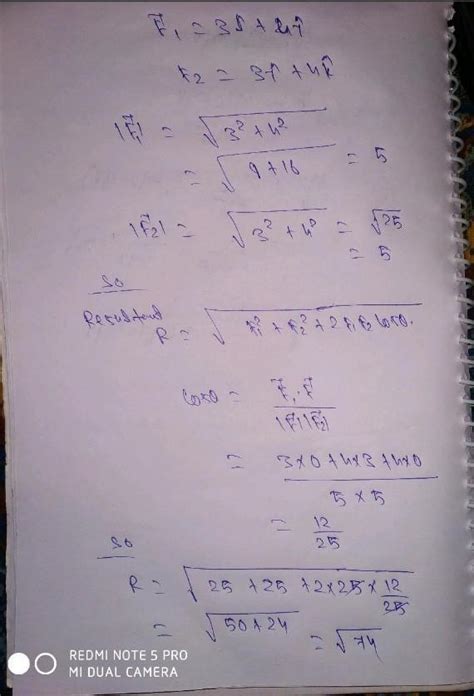 F⃗₁ = 3î + 4ĵ
F₂ = 3ĵ + 4k̂
|F⃗₁| = √(3² + 4²)
= √(9 + 16) = 5
|F⃗₂| = √(3² + 4²) = √25
= 5
so
Resultant R = √(F₁² + F₂² + 2F₁F₂ cosθ.
cosθ = F⃗₁·F⃗ / |F⃗₁||F⃗₂|
= 3×0 + 4×3 + 4×0 / 5 × 5
= 12/25
so
R = √(25 + 25 + 2×25 × 12/25)
= √(50+24) = √74
REDMI NOTE 5 PRO
MI DUAL CAMERA